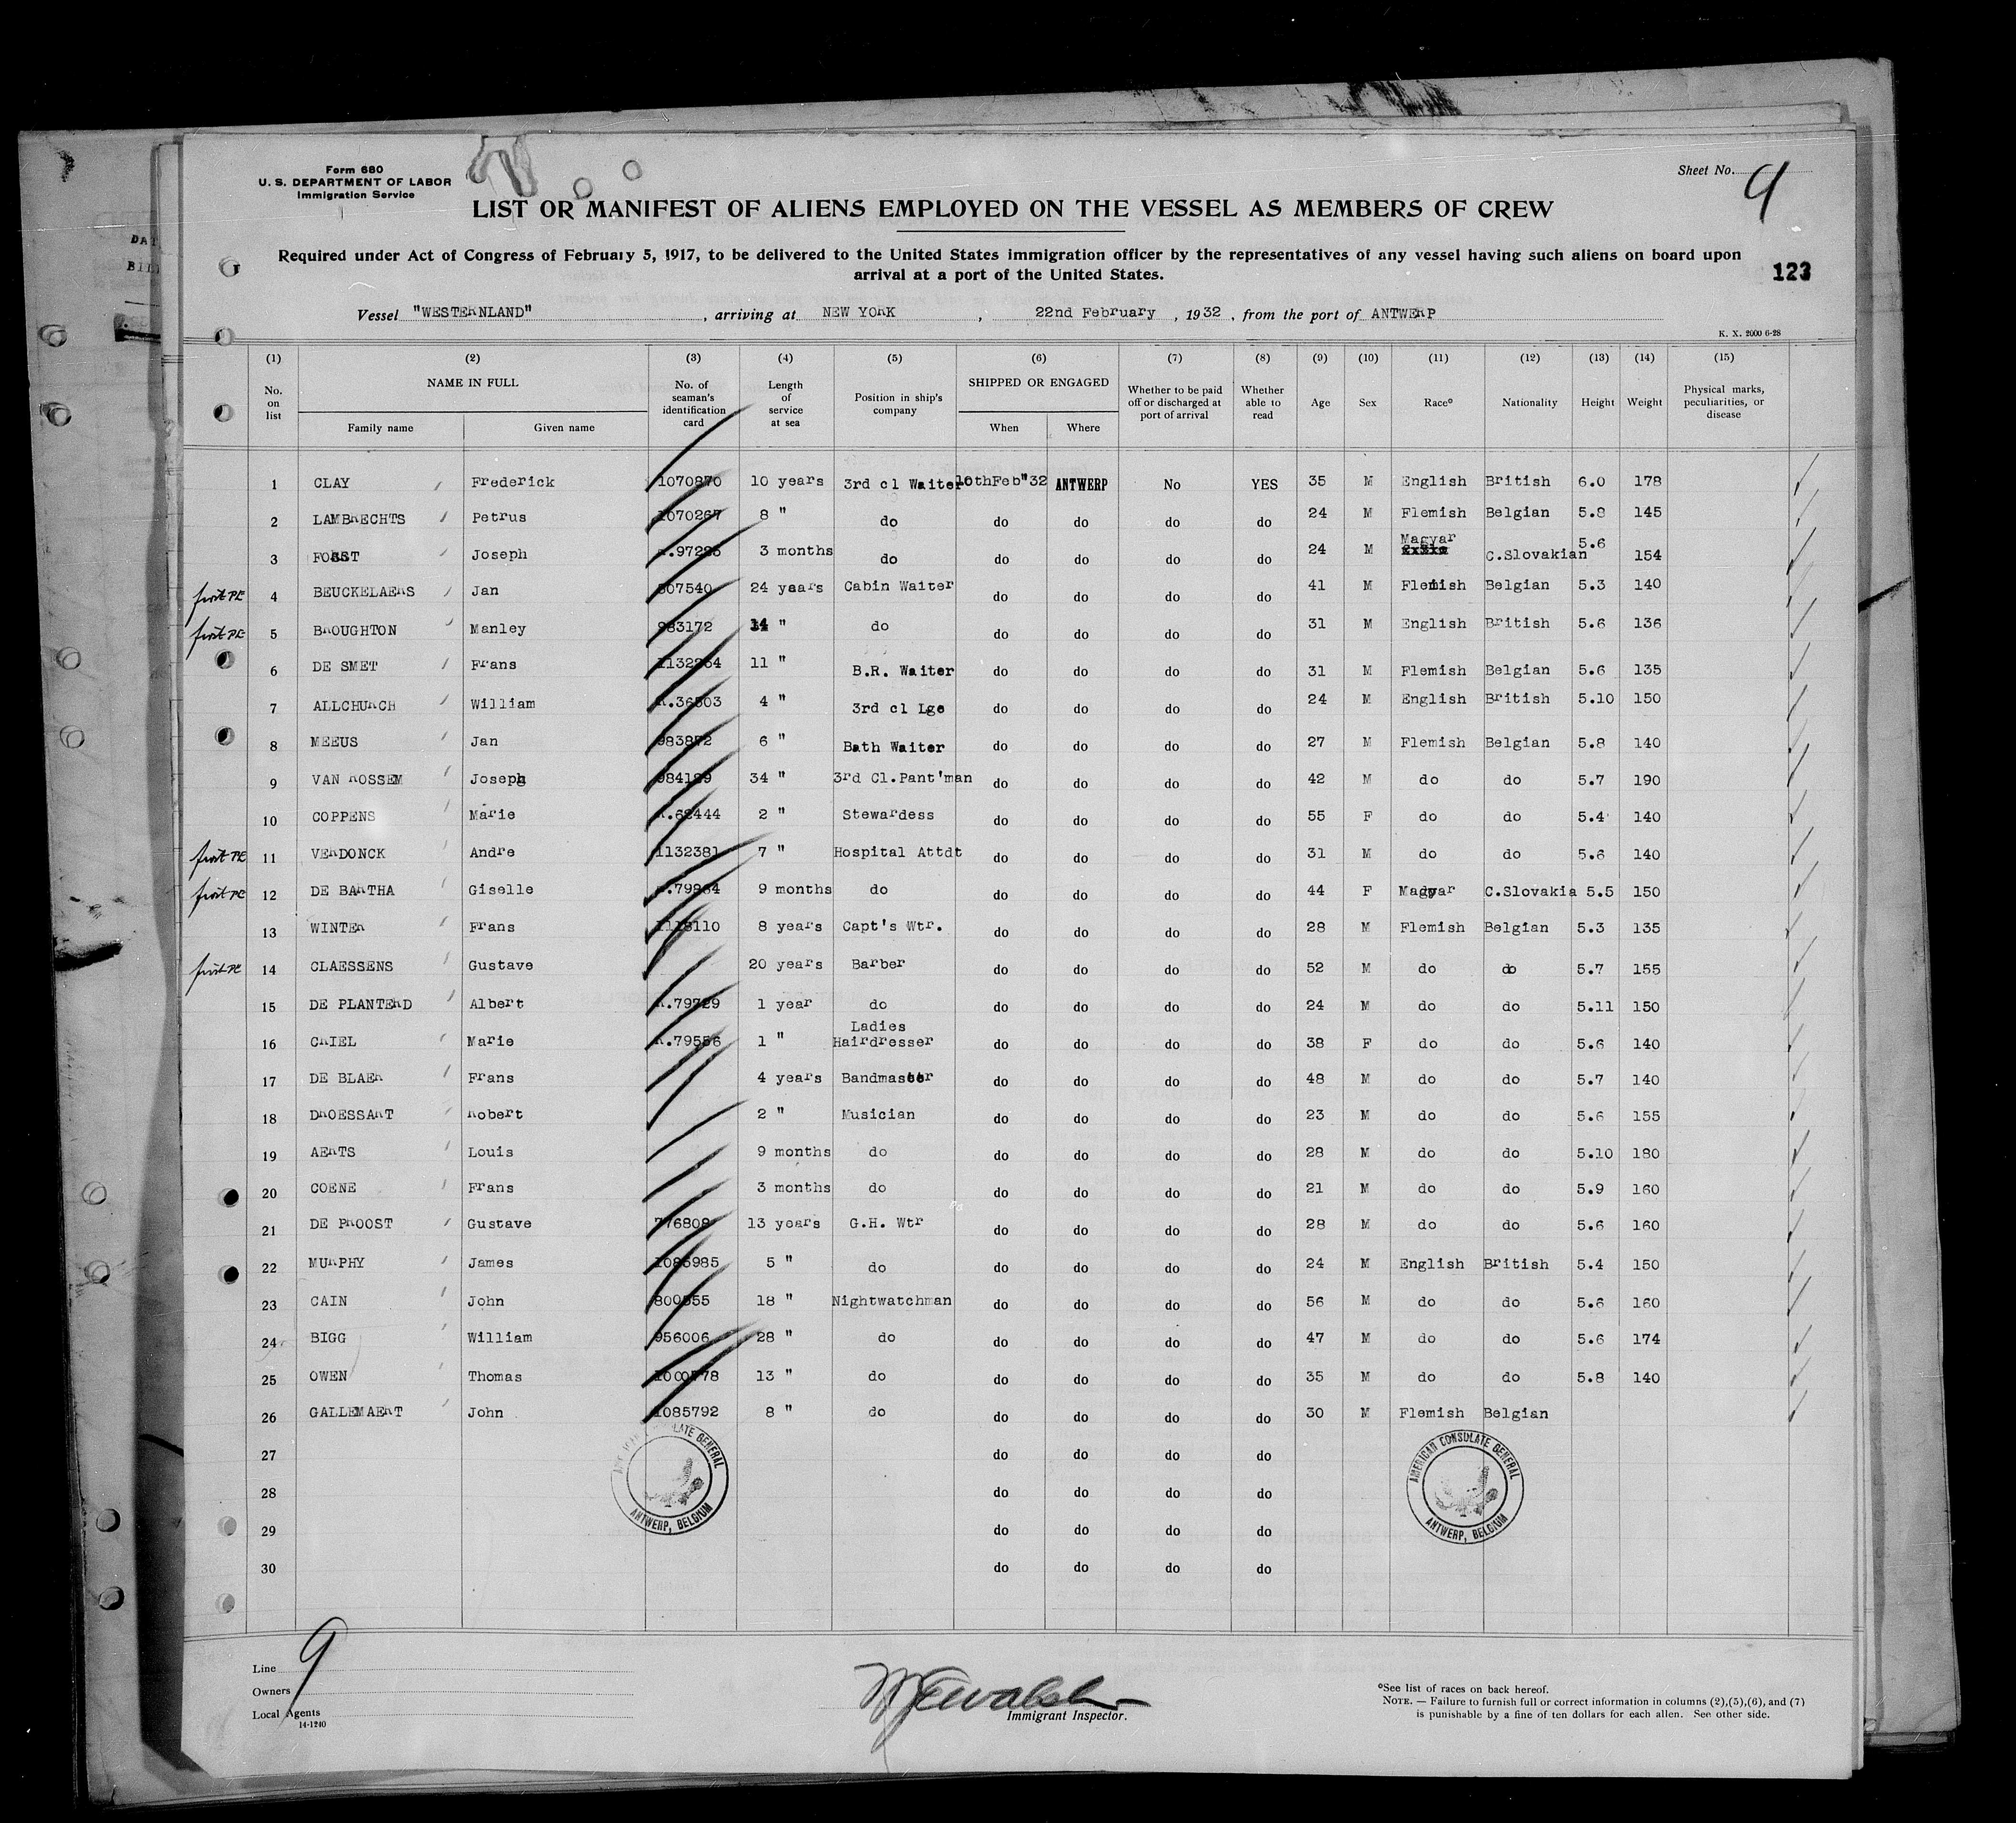 Form 680
U. S. DEPARTMENT OF LABOR
Immigration Service
Sheet No. 9
LIST OR MANIFEST OF ALIENS EMPLOYED ON THE VESSEL AS MEMBERS OF CREW
Required under Act of Congress of February 5, 1917, to be delivered to the United States immigration officer by the representatives of any vessel having such aliens on board upon
arrival at a port of the United States.
123
Vessel "WESTERNLAND" , arriving at NEW YORK , 22nd February , 1932 , from the port of ANTWERP
K. X. 2000 6-28
(1) (2) (3) (4) (5) (6) (7) (8) (9) (10) (11) (12) (13) (14) (15)
No. on list NAME IN FULL Family name Given name No. of seaman's identification card Length of service at sea Position in ship's company SHIPPED OR ENGAGED When Where Whether to be paid off or discharged at port of arrival Whether able to read Age Sex Race° Nationality Height Weight Physical marks, peculiarities, or disease
1 CLAY Frederick 1070870 10 years 3rd cl Waiter 10thFeb"32 ANTWERP No YES 35 M English British 6.0 178
2 LAMBRECHTS Petrus 1070267 8 " do do do do do 24 M Flemish Belgian 5.8 145
3 Joseph 3 months do do do do do 24 M Magyar C.Slovakian 5.6 154
4 BEUCKELAERS Jan 24 years Cabin Waiter do do do do 41 M Flemish Belgian 5.3 140
5 BROUGHTON Manley 983172 14 " do do do do do 31 M English British 5.6 136
6 DE SMET Frans 11 " B.R. Waiter do do do do 31 M Flemish Belgian 5.6 135
7 ALLCHURCH William 4 " 3rd cl Lge do do do do 24 M English British 5.10 150
8 MEEUS Jan 983872 6 " Bath Waiter do do do do 27 M Flemish Belgian 5.8 140
9 VAN ROSSEM Joseph 34 " 3rd Cl.Pant'man do do do do 42 M do do 5.7 190
10 COPPENS Marie 2 " Stewardess do do do do 55 F do do 5.4 140
11 VERDONCK Andre 1132381 7 " Hospital Attdt do do do do 31 M do do 5.6 140
12 DE BARTHA Giselle 9 months do do do do do 44 F Magyar C.Slovakia 5.5 150
13 WINTER Frans 8 years Capt's Wtr. do do do do 28 M Flemish Belgian 5.3 135
14 CLAESSENS Gustave 20 years Barber do do do do 52 M do do 5.7 155
15 DE PLANTERD Albert R.79729 1 year do do do do do 24 M do do 5.11 150
16 CRIEL Marie R.79556 1 " Ladies Hairdresser do do do do 38 F do do 5.6 140
17 DE BLAER Frans 4 years Bandmaster do do do do 48 M do do 5.7 140
18 DROESSART Robert 2 " Musician do do do do 23 M do do 5.6 155
19 AERTS Louis 9 months do do do do do 28 M do do 5.10 180
20 COENE Frans 3 months do do do do do 21 M do do 5.9 160
21 DE PROOST Gustave 776808 13 years G.H. Wtr do do do do 28 M do do 5.6 160
22 MURPHY James 1085985 5 " do do do do do 24 M English British 5.4 150
23 CAIN John 18 " Nightwatchman do do do do 56 M do do 5.6 160
24 BIGG William 956006 28 " do do do do do 47 M do do 5.6 174
25 OWEN Thomas 13 " do do do do do 35 M do do 5.8 140
26 GALLEMAERT John 1085792 8 " do do do do do 30 M Flemish Belgian
27 do do do do
28 do do do do
29 do do do do
30 do do do do
AMERICAN CONSULATE GENERAL
ANTWERP, BELGIUM
LATE GENERAL
ANTWERP, BELGIUM
Line
Owners
Local Agents
14-1240
9
Immigrant Inspector.
°See list of races on back hereof.
NOTE. — Failure to furnish full or correct information in columns (2),(5),(6), and (7)
is punishable by a fine of ten dollars for each alien. See other side.